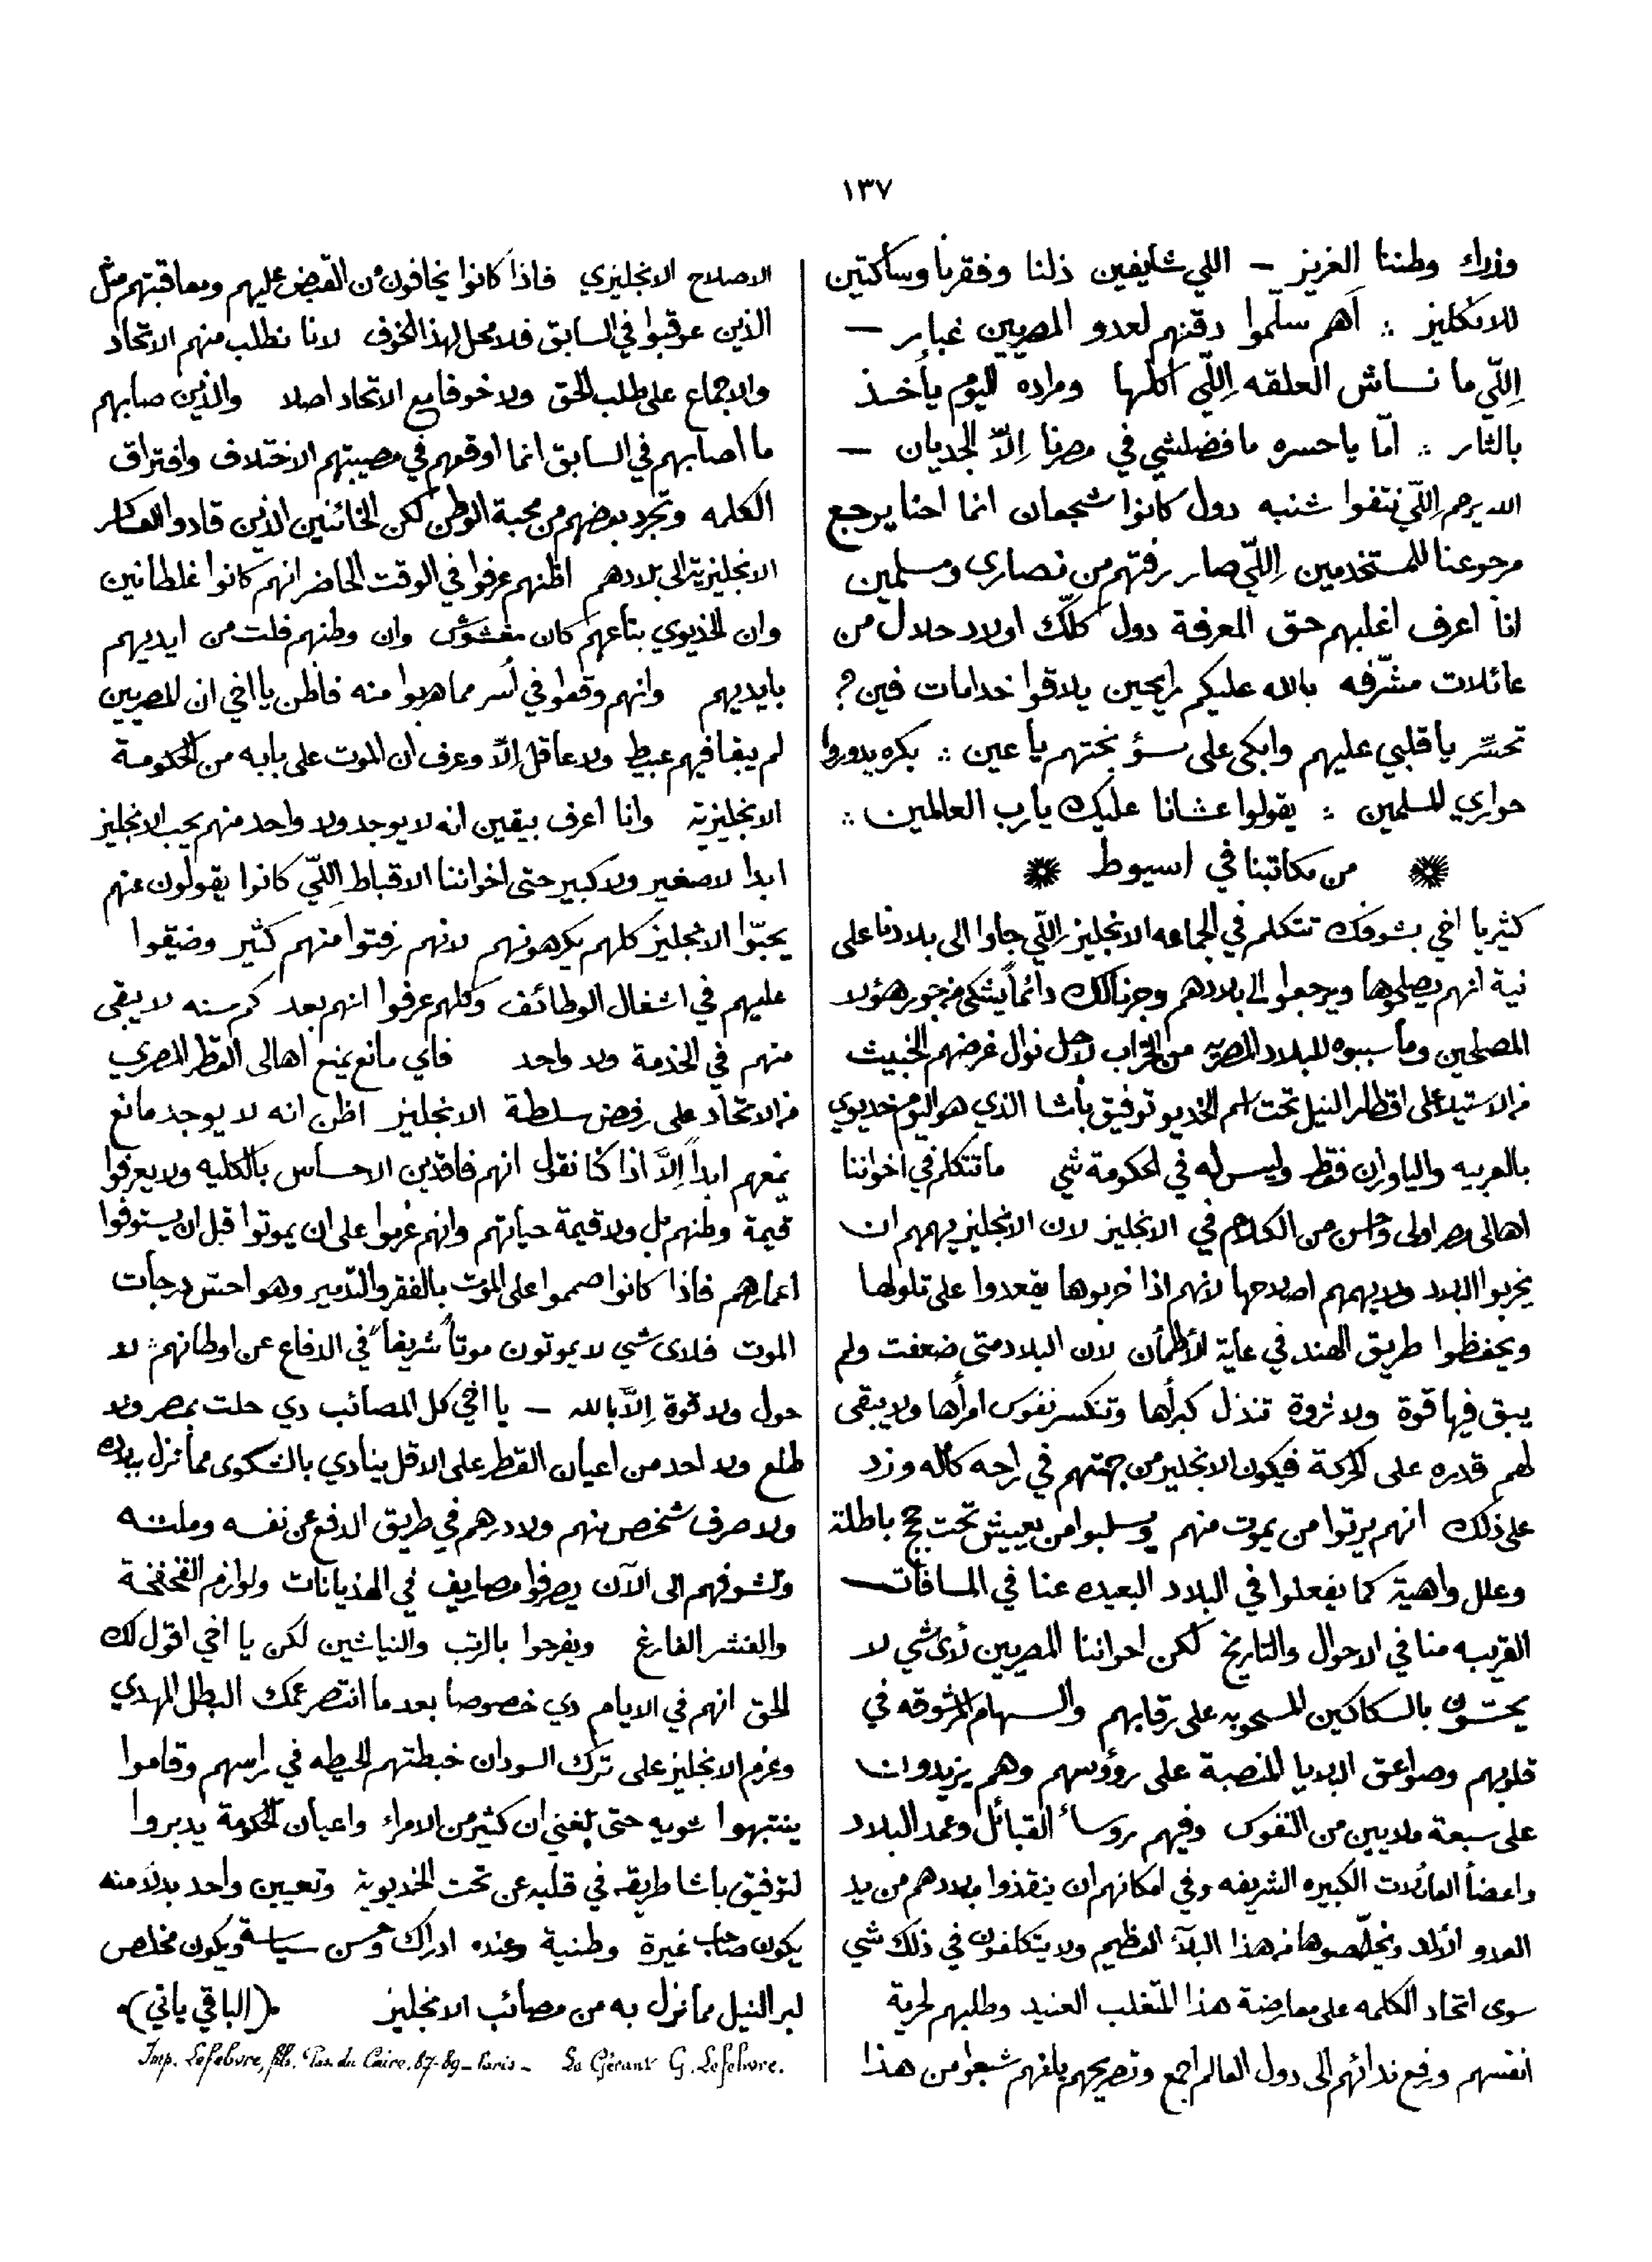 ١٣٧
وزرك وطننا العزيز — اللي شايفين ذلنا وفقرنا وساكتين
للانكليز ؞ أهم سلّموا دقنهم لعدو المصريين غبابر —
اِللّي ما نساش العلقه اِللّي اكلها ومراده اليوم يأخذ
بالثار ؞ امّا ياحسره ما فضلشي في مصرنا اِلاّ الجديان —
الله يرحم اِللّي نتفوا شنبه دول كانوا شجعان انما احنا يرجع
مرجوعنا للمستخدمين اِللّي صار رفتهم من نصارى ومسلمين
انا اعرف اغلبهم حق المعرفة دول كلّك اولاد حلال من
عائلات مشرّفه بالله عليكم رايحين يلاقوا خدامات فين ؟
تحسّر يا قلبي عليهم وابكي على سؤ بختهم يا عين ؞ بكره يدوروا
حواري المسلمين ؞ يقولوا عشانا عليك يارب العالمين ؞
من مكاتبنا في اسيوط
كثير يا اخي بشوفك تتكلم في الجماعه الانجليز اِللّي جاوا الى بلادنا على
نية انهم يصلحوها ويرجعوا الى بلادهم وجرنالك دائماً يشتكي من جور هؤلاء
المصلحين وما سببوه للبلاد المصريه من الخراب لاجل نوال غرضهم الخبيث
من الاستيلاء على اقطار النيل تحت اسم الخديو توفيق باشا الذي هو اليوم خديوي
بالعربيه والياوران فقط وليس له في الحكومة شي ما تتكلم في اخواننا
اهالي مصر اولى واحسن من الكلام في الانجليز لان الانجليز يهمهم ان
يخربوا البلاد ولا يهمهم اصلاحها لانهم اذا خربوها يقعدوا على تلولها
ويحفظوا طريق الهند في غاية الاطمأن لان البلاد متى ضعفت ولم
يبق فيها قوة ولا ثروة تنذل كبرأها وتنكسر نفوس امرأها ولا يبقى
لهم قدره على الحركة فيكون الانجليز من جهتهم في راحه كامله وزد
على ذلك انهم يرثوا من يموت منهم ويسلبوا من يعيش تحت حجج باطلة
وعلل واهية كما يفعلوا في البلاد البعيده عنا في المسافات
القريبه منا في الاحوال والتاريخ لكن اخواننا المصريين لأى شي لا
يحسّون بالسكاكين المسحوبه على رقابهم والسهام المرشوقه في
قلوبهم وصواعق البلايا المنصبة على رؤوسهم وهم يزيدوا ن
على سبعة ملايين من النفوس وفيهم روساء القبائل وعمد البلاد
واعضأ العائلات الكبيره الشريفه وفي امكانهم ان ينقذوا بلادهم من يد
العدو الألد ويخلّصوها من هذا البلآء العظيم ولا يتكلفون في ذلك شي
سوى اتحاد الكلمه على معارضة هذا المتغلب العنيد وطلبهم لحرية
انفسهم ورفع ندائهم الى دول العالم اجمع وتصريحهم بانهم شبعوا من هذا
الاصلاح الانجليزي فاذا كانوا يخافون من القبض عليهم ومعاقبتهم مثل
الذين عوقبوا في السابق فلا محل لهذا الخوف لانا نطلب منهم الاتحاد
والاجماع على طلب الحق ولا خوفا مع الاتحاد اصلا والذين صابهم
ما اصابهم في السابق انما اوقعهم في مصيبتهم الاختلاف وافتراق
الكلمه وتجرد بعضهم من محبة الوطن لكن الخائنين الذين قادوا العساكر
الانجليزية الى بلادهم اظنهم عرفوا في الوقت الحاضر انهم كانوا غلطانين
وان الخديوي بتاعهم كان مغشوش وان وطنهم فلت من ايديهم
بايديهم وانهم وقعوا في أسر مما هربوا منه فاظن يا اخي ان المصريين
لم يبقا فيهم عبيط ولا عاقل اِلاّ وعرف أن الموت على بابه من الحكومة
الانجليزية وانا اعرف بيقين انه لا يوجد ولا واحد منهم يحب الانجليز
ابدا لا صغير ولا كبير حتى اخواننا الاقباط اِللّي كانوا يقولون عنهم
يحبّوا الانجليز كلهم يكرهونهم لانهم رفتوا منهم كثير وضيقوا
عليهم في اشغال الوظائف وكلهم عرفوا انهم بعد كم سنه لا يبقى
منهم في الخدمة ولا واحد فاي مانع يمنع اهالى القطر المصري
من الاتحاد على رفض سلطة الانجليز اظن انه لا يوجد مانع
يمنعهم ابداً اِلاَّ اذا كنا نقول انهم فاقدين الاحساس بالكليه ولا يعرفوا
قيمة وطنهم بل ولا قيمة حياتهم وانهم عزموا على ان يموتوا قبل ان يستوفوا
اعمارهم فاذا كانوا صمموا على الموت بالفقر والتدمير وهو احسّ درجات
الموت فلاى شي لا يموتون موتاً شريفاً في الدفاع عن اوطانهم ؞ لا
حول ولا قوة اِلاَّ بالله — يا اخي كل المصائب دي حلت بمصر ولا
طلع ولا احد من اعيان القطر على الاقل ينادي بالشكوى مما نزل ببلاده
ولا صرف شخص منهم ولا درهم في طريق الدفع عن نفسه وملته
ونشوفهم الى الآن يصرفوا مصاريف في الهذيانات ولوازم الفخفخة
والفشر الفارغ ويفرحوا بالرتب والنياشين لكن يا اخي اقول لك
الحق انهم في الايام دي خصوصا بعد ما انتصر عمك البطل المهدي
وعزم الانجليز على ترك السودان خبطتهم الحيطه في راسهم وقاموا
ينتبهوا شويه حتى بلغني ان كثير من الامراء واعيان الحكومة يدبروا
لتوفيق باشا طريقه في قلبه عن تخت الخديوية وتعيين واحد بدلاً منه
يكون صاحب غيرة وطنية وعنده ادراك وحسن سياسة ويكون مخلص
لبر النيل مما نزل به من مصائب الانجليز (الباقي ياتي)
Imp. Lefebvre, Pas. du Caire. 87-89 - Paris - Le Gérant G. Lefebvre.